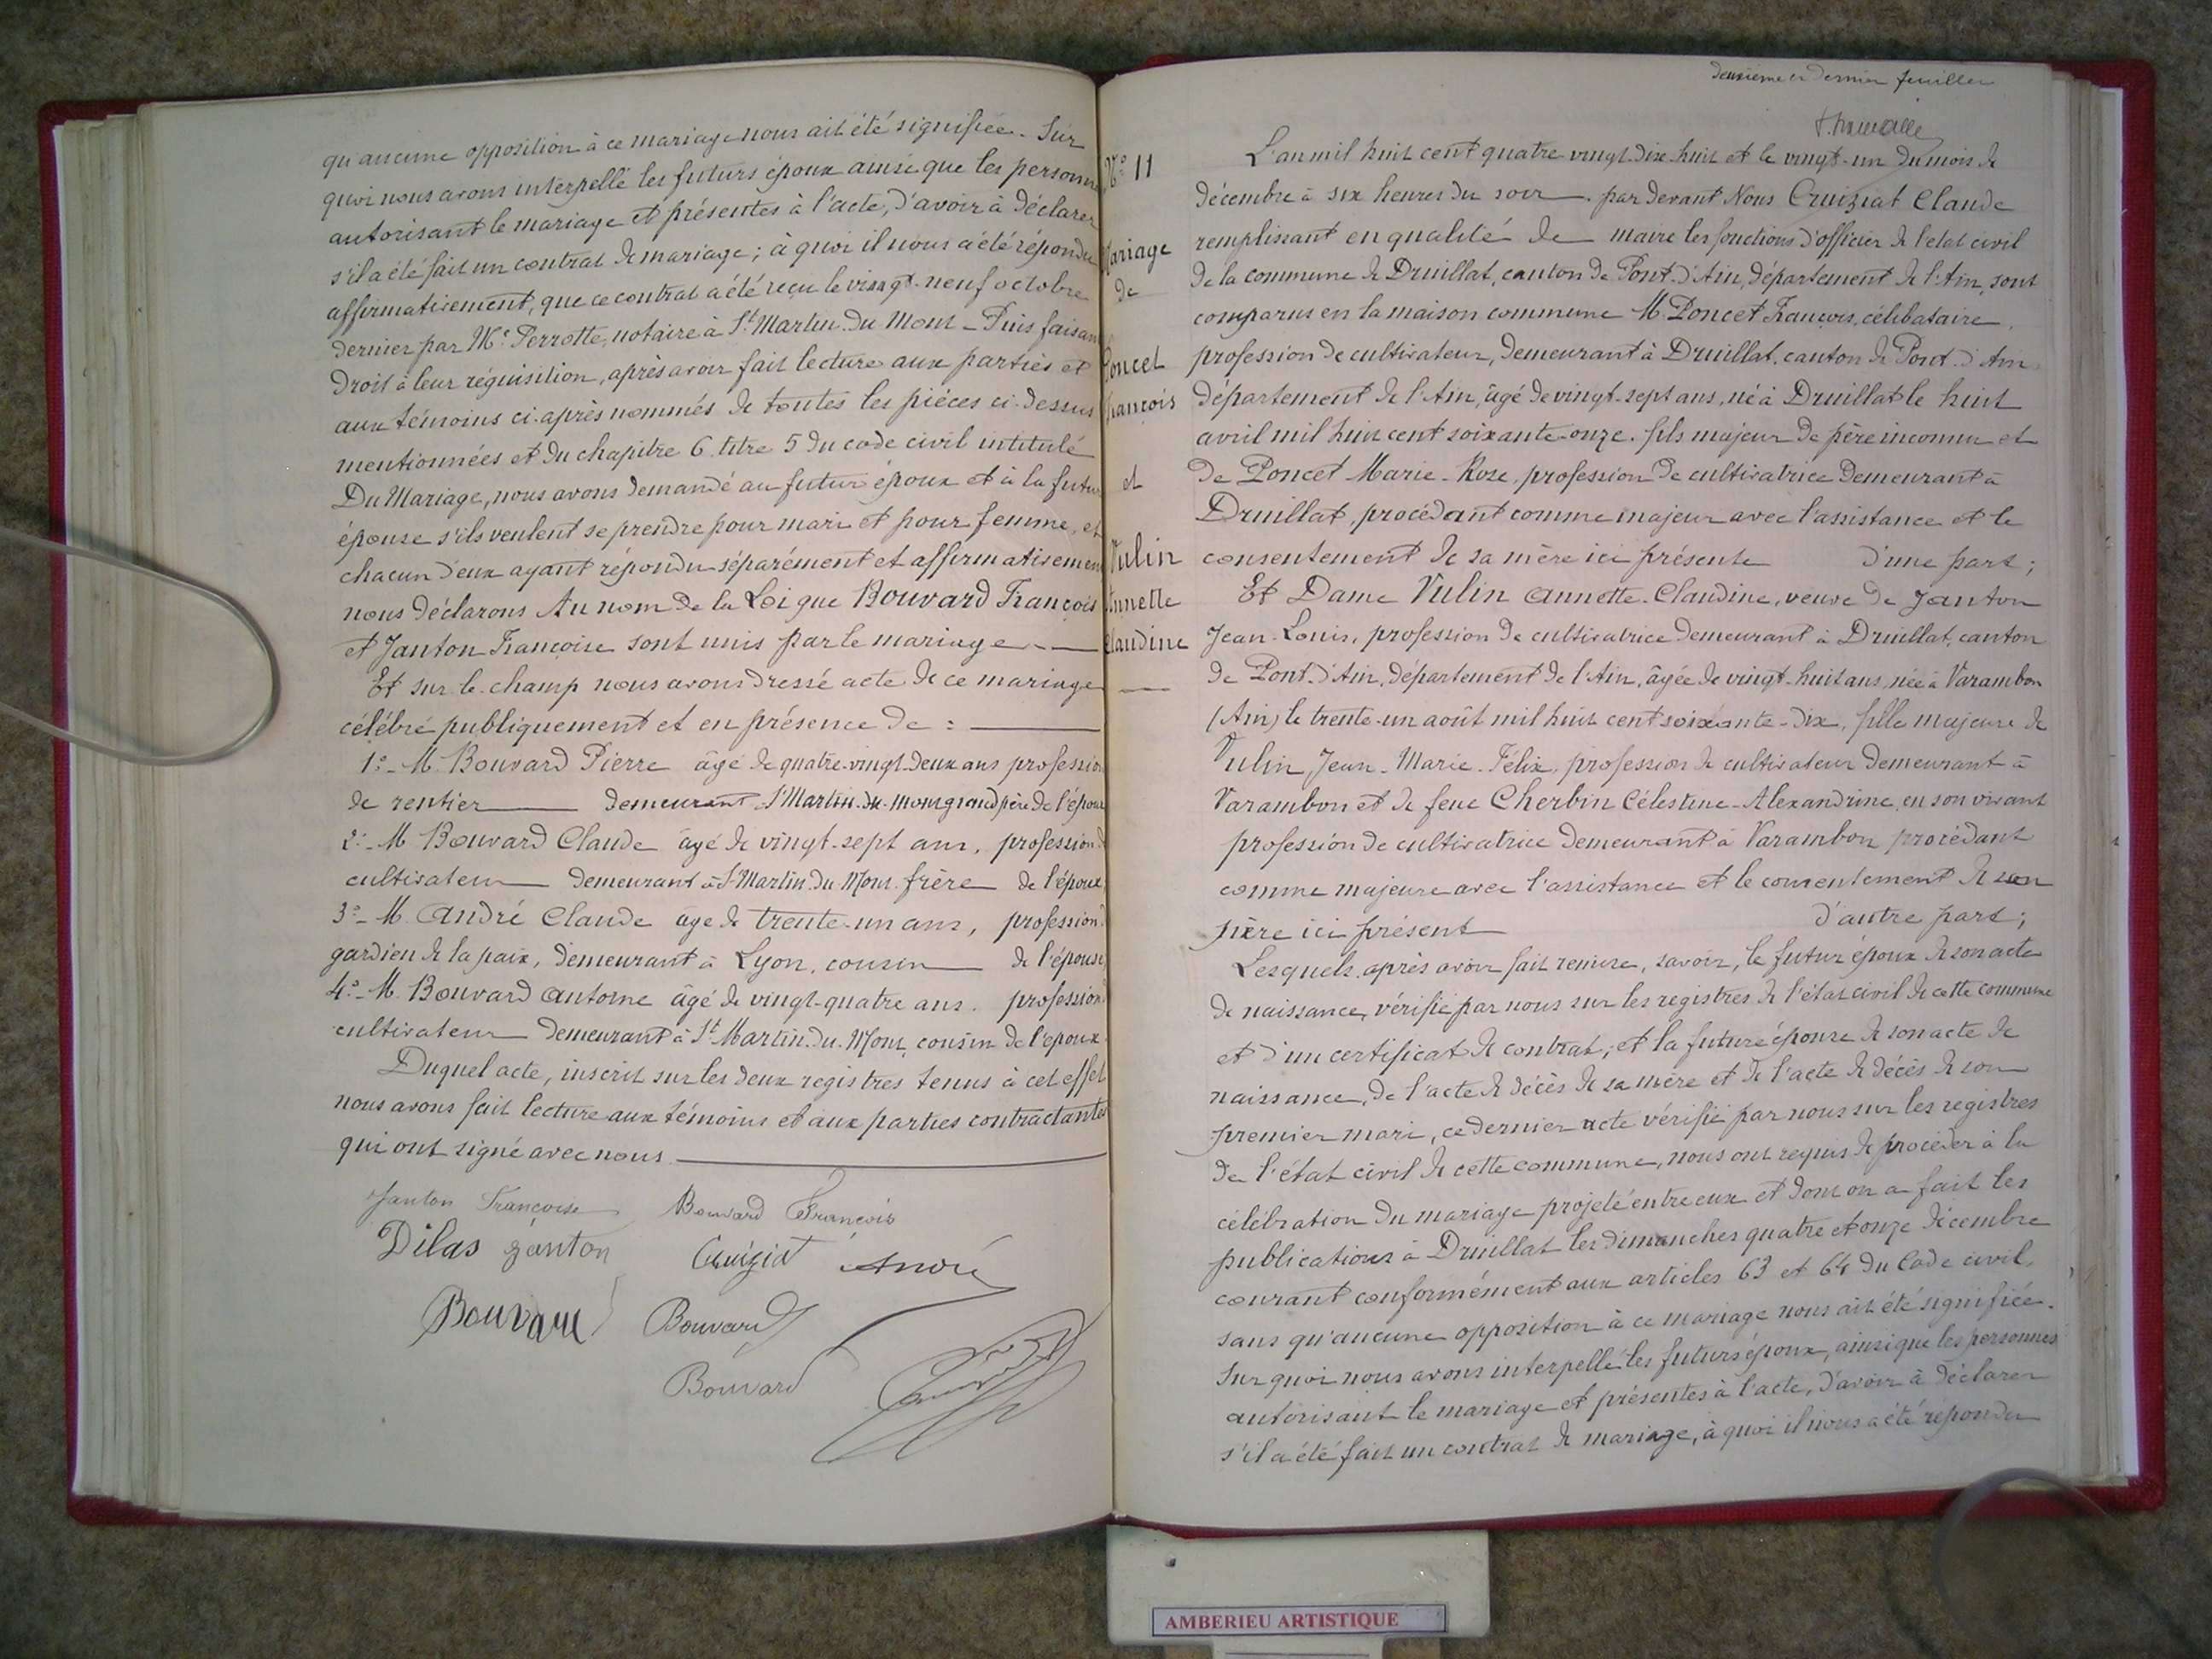 qu'aucune opposition à ce mariage nous ait été signifiée. Sur
quoi nous avons interpellé les futurs époux ainsi que les personnes
autorisant le mariage et présentes à l'acte, d'avoir à déclarer
s'il a été fait un contrat de mariage; à quoi il nous a été répondu
affirmativement, que ce contrat a été reçu le vingt-neuf octobre
dernier par Me Perrotte, notaire à St Martin-du-Mont - Puis faisant
droit à leur réquisition, après avoir fait lecture aux parties et
aux témoins ci-après nommés de toutes les pièces ci-dessus
mentionnées et du chapitre 6 titre 5 du code civil intitulé
Du Mariage, nous avons demandé au futur époux et à la future
épouse s'ils veulent se prendre pour mari et pour femme, et
chacun d'eux ayant répondu séparément et affirmativement
nous déclarons Au nom de la Loi que Bouvard François
et Janton Françoise sont unis par le mariage
Et sur le champ nous avons dressé acte de ce mariage
célébré publiquement et en présence de :
1o - M. Bouvard Pierre âgé de quatre-vingt-deux ans profession
de rentier demeurant St Martin-du-Mont grand père de l'époux
2o - M Bouvard Claude âgé de vingt-sept ans, profession d
cultivateur demeurant à St Martin-du-Mont frère de l'époux,
3o - M. André Claude âgé de trente-un ans, profession d
gardien de la paix, demeurant à Lyon, cousin de l'épouse,
4o - M. Bouvard Antoine âgé de vingt-quatre ans. profession d
cultivateur demeurant à St Martin-du-Mont, cousin de l'époux.
Duquel acte, inscrit sur les deux registres tenus à cet effet
nous avons fait lecture aux témoins et aux parties contractantes
qui ont signé avec nous
Janton Françoise Bouvard François
Dilas Janton Cruiziat André
Bouvard Bouvard
Bouvard
deuxième et dernier feuillet
No 11
Mariage
de
Poncet
François
et
Vulin
Annette
Claudine
L'an mil huit cent quatre vingt-dix-huit et le vingt-un du mois de
décembre à six heures du soir . par devant Nous Cruiziat Claude
remplissant en qualité de maire les fonctions d'officier de l'etat civil
de la commune de Druillat, canton de Pont-d'Ain, département de l'Ain, sont
comparus en la maison commune M. Poncet François, célibataire,
profession de cultivateur, demeurant à Druillat, canton de Pont-d'Ain
département de l'Ain, âgé de vingt-sept ans, né à Druillat le huit
avril mil huit cent soixante-onze. fils majeur de père inconnu et
de Poncet Marie-Rose, profession de cultivatrice demeurant à
Druillat, procédant comme majeur avec l'assistance et le
consentement de sa mère ici présente d'une part;
Et Dame Vulin Annette-Claudine, veuve de Janton
Jean-Louis, profession de cultivatrice demeurant à Druillat, canton
de Pont-d'Ain, département de l'Ain, âgée de vingt-huit ans, née à Varambon
(Ain) le trente-un août mil huit cent soixante-dix, fille majeure de
Vulin, Jean-Marie-Félix, profession de cultivateur demeurant à
Varambon et de feue Cherbin Célestine-Alexandrine, en son vivant
profession de cultivatrice demeurant à Varambon procédant
comme majeure avec l'assistance et le consentement de son
père ici présent d'autre part;
Lesquels, après avoir fait remise, savoir, le futur époux de son acte
de naissance, vérifié par nous sur les registres de l'état civil de cette commune
et d'un certificat de contrat; et la future épouse de son acte de
naissance, de l'acte de décès de sa mère et de l'acte de décès de son
premier mari, ce dernier acte vérifié par nous sur les registres
de l'état civil de cette commune, nous ont requis de procéder à la
célébration du mariage projeté entre eux et dont on a fait les
publications à Druillat les dimanches quatre et onze décembre
courant conformément aux articles 63 et 64 du Code civil,
sans qu'aucune opposition à ce mariage nous ait été signifiée.
Sur quoi nous avons interpellé les futurs époux, ainsi que les personnes
autorisant le mariage et présentes à l'acte, d'avoir à déclarer
s'il a été fait un contrat de mariage, à quoi il nous a été répondu
AMBERIEU ARTISTIQUE